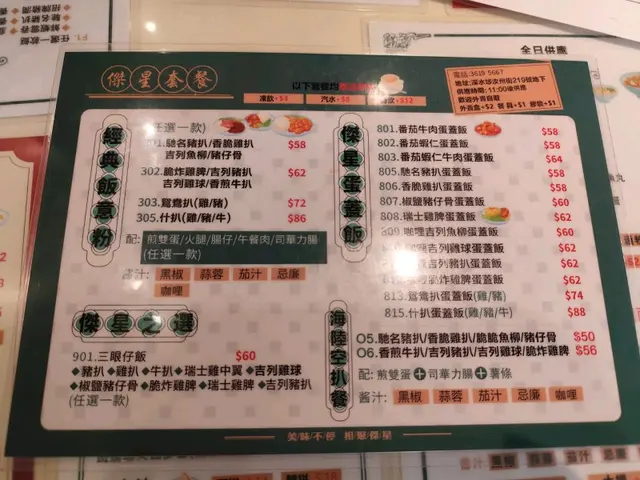 傑星套餐
以下餐飲均
凍飲+$3 汽水+$8 $12
電話:3619 5667
地址:深水埗汝州街219號地下
供應時間: 11:00後供應
歡迎外賣自取
外賣盒+$2 餐具+$1 膠袋+$1
全日供應
經典飯意粉
(任選一款)
301.馳名豬扒/香脆雞扒 $58
吉列魚柳/豬仔骨
302.脆炸雞脾/吉列豬扒 $62
吉列雞球/香煎牛扒
303.鴛鴦扒(雞/豬) $72
305.什扒(雞/豬/牛) $86
配: 煎雙蛋/火腿/腸仔/午餐肉/司華力腸
(任選一款)
醬汁: 黑椒 蒜蓉 茄汁 忌廉
咖哩
傑星之選
901.三眼仔飯 $60
◆豬扒◆雞扒◆牛扒◆瑞士雞中翼◆吉列雞球
◆椒鹽豬仔骨◆脆炸雞脾◆瑞士雞脾◆吉列豬扒
(任選一款)
傑星蛋蓋飯
801.番茄牛肉蛋蓋飯 $58
802.番茄蝦仁蛋蓋飯 $58
803.番茄蝦仁牛肉蛋蓋飯 $64
805.馳名豬扒蛋蓋飯 $58
806.香脆雞扒蛋蓋飯 $58
807.椒鹽豬仔骨蛋蓋飯 $60
808.瑞士雞脾蛋蓋飯 $62
809.咖哩吉列魚柳蛋蓋飯 $60
吉列雞球蛋蓋飯 $62
吉列豬扒蛋蓋飯 $62
脆炸雞脾蛋蓋飯 $62
813.鴛鴦扒蛋蓋飯(雞/豬) $74
815.什扒蛋蓋飯(雞/豬/牛) $88
海陸空扒餐
O5.馳名豬扒/香脆雞扒/脆脆魚柳/豬仔骨 $50
O6.香煎牛扒/吉列豬扒/吉列雞球/脆炸雞脾 $56
配: 煎雙蛋+司華力腸+薯條
醬汁: 黑椒 蒜蓉 茄汁 忌廉 咖哩
美味不停 相聚傑星